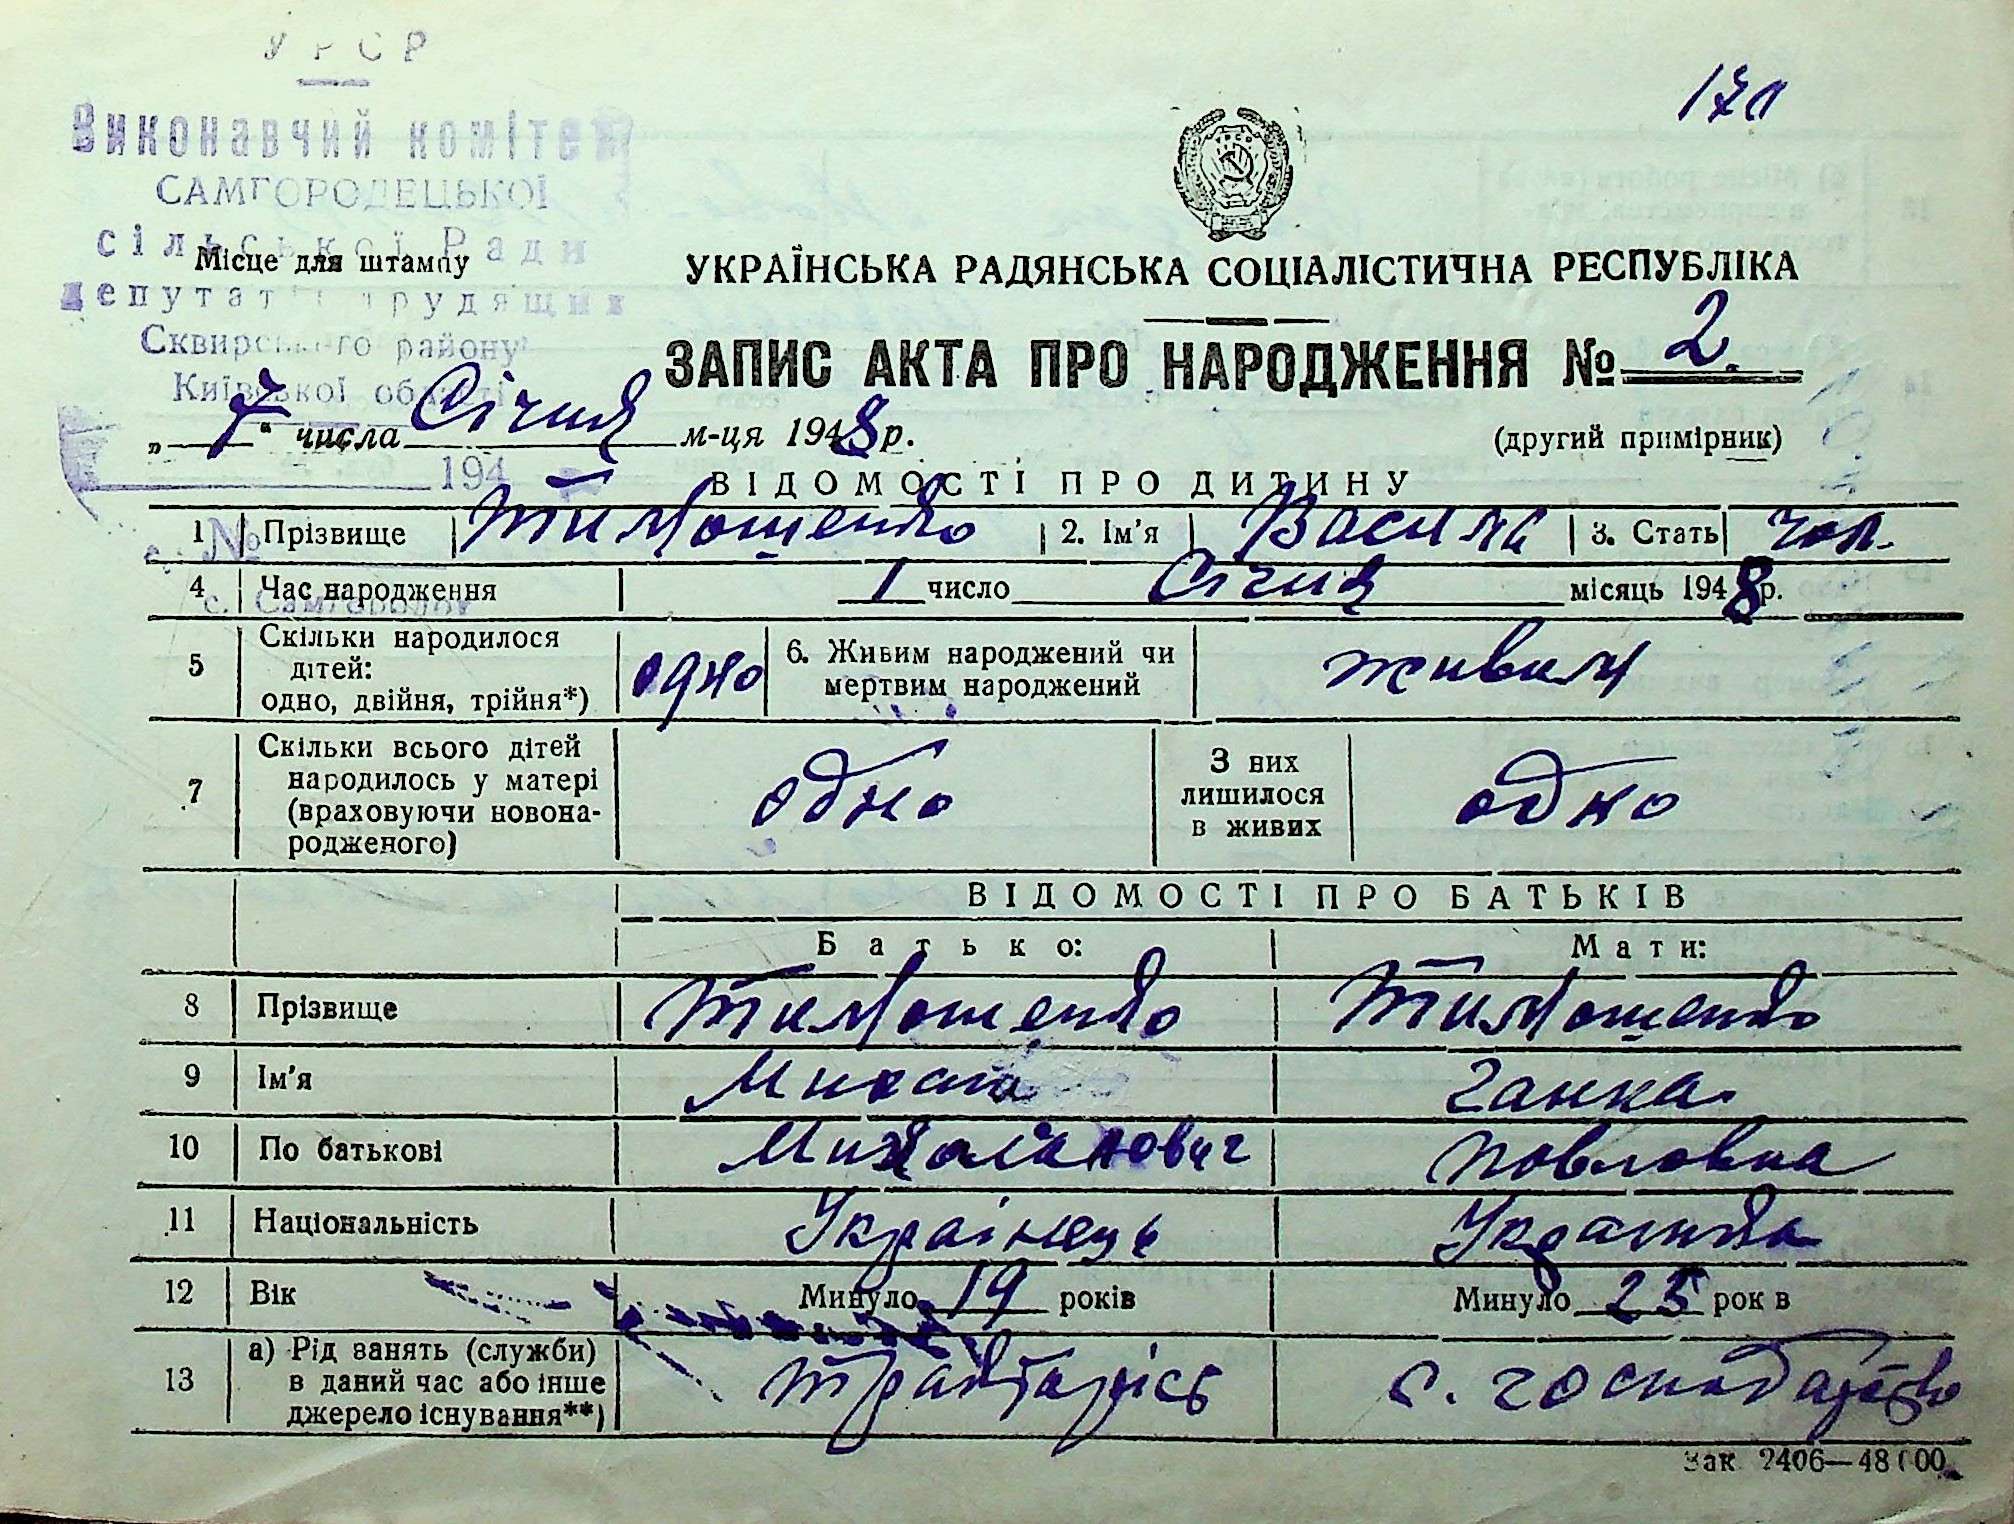 УРСР
Виконавчий комітет
САМГОРОДЕЦЬКОЇ
сільської Ради
депутатів трудящих
Сквирського району
Київської області
194
№
с. Самгородок
17л
Місце для штампу
УКРАЇНСЬКА РАДЯНСЬКА СОЦІАЛІСТИЧНА РЕСПУБЛІКА
ЗАПИС АКТА ПРО НАРОДЖЕННЯ № 2.
„ 7 " числа Січня м-ця 1948 р.
(другий примірник)
ВІДОМОСТІ ПРО ДИТИНУ
1 Прізвище Тимошенко 2. Ім'я Василь 3. Стать чол.
4 Час народження 1 число Січня місяць 1948 р.
5 Скільки народилося дітей: одно, двійня, трійня*) одно 6. Живим народжений чи мертвим народжений живим
7 Скільки всього дітей народилось у матері (враховуючи новонародженого) одно З них лишилося в живих одно
ВІДОМОСТІ ПРО БАТЬКІВ
Батько: Мати:
8 Прізвище Тимошенко Тимошенко
9 Ім'я Михайло Ганна
10 По батькові Павловна
11 Національність Українець Українка
12 Вік Минуло 19 років Минуло 25 рок в
13 а) Рід занять (служби) в даний час або інше джерело існування**) тракторист с. господарство
Зак 2406—48 000